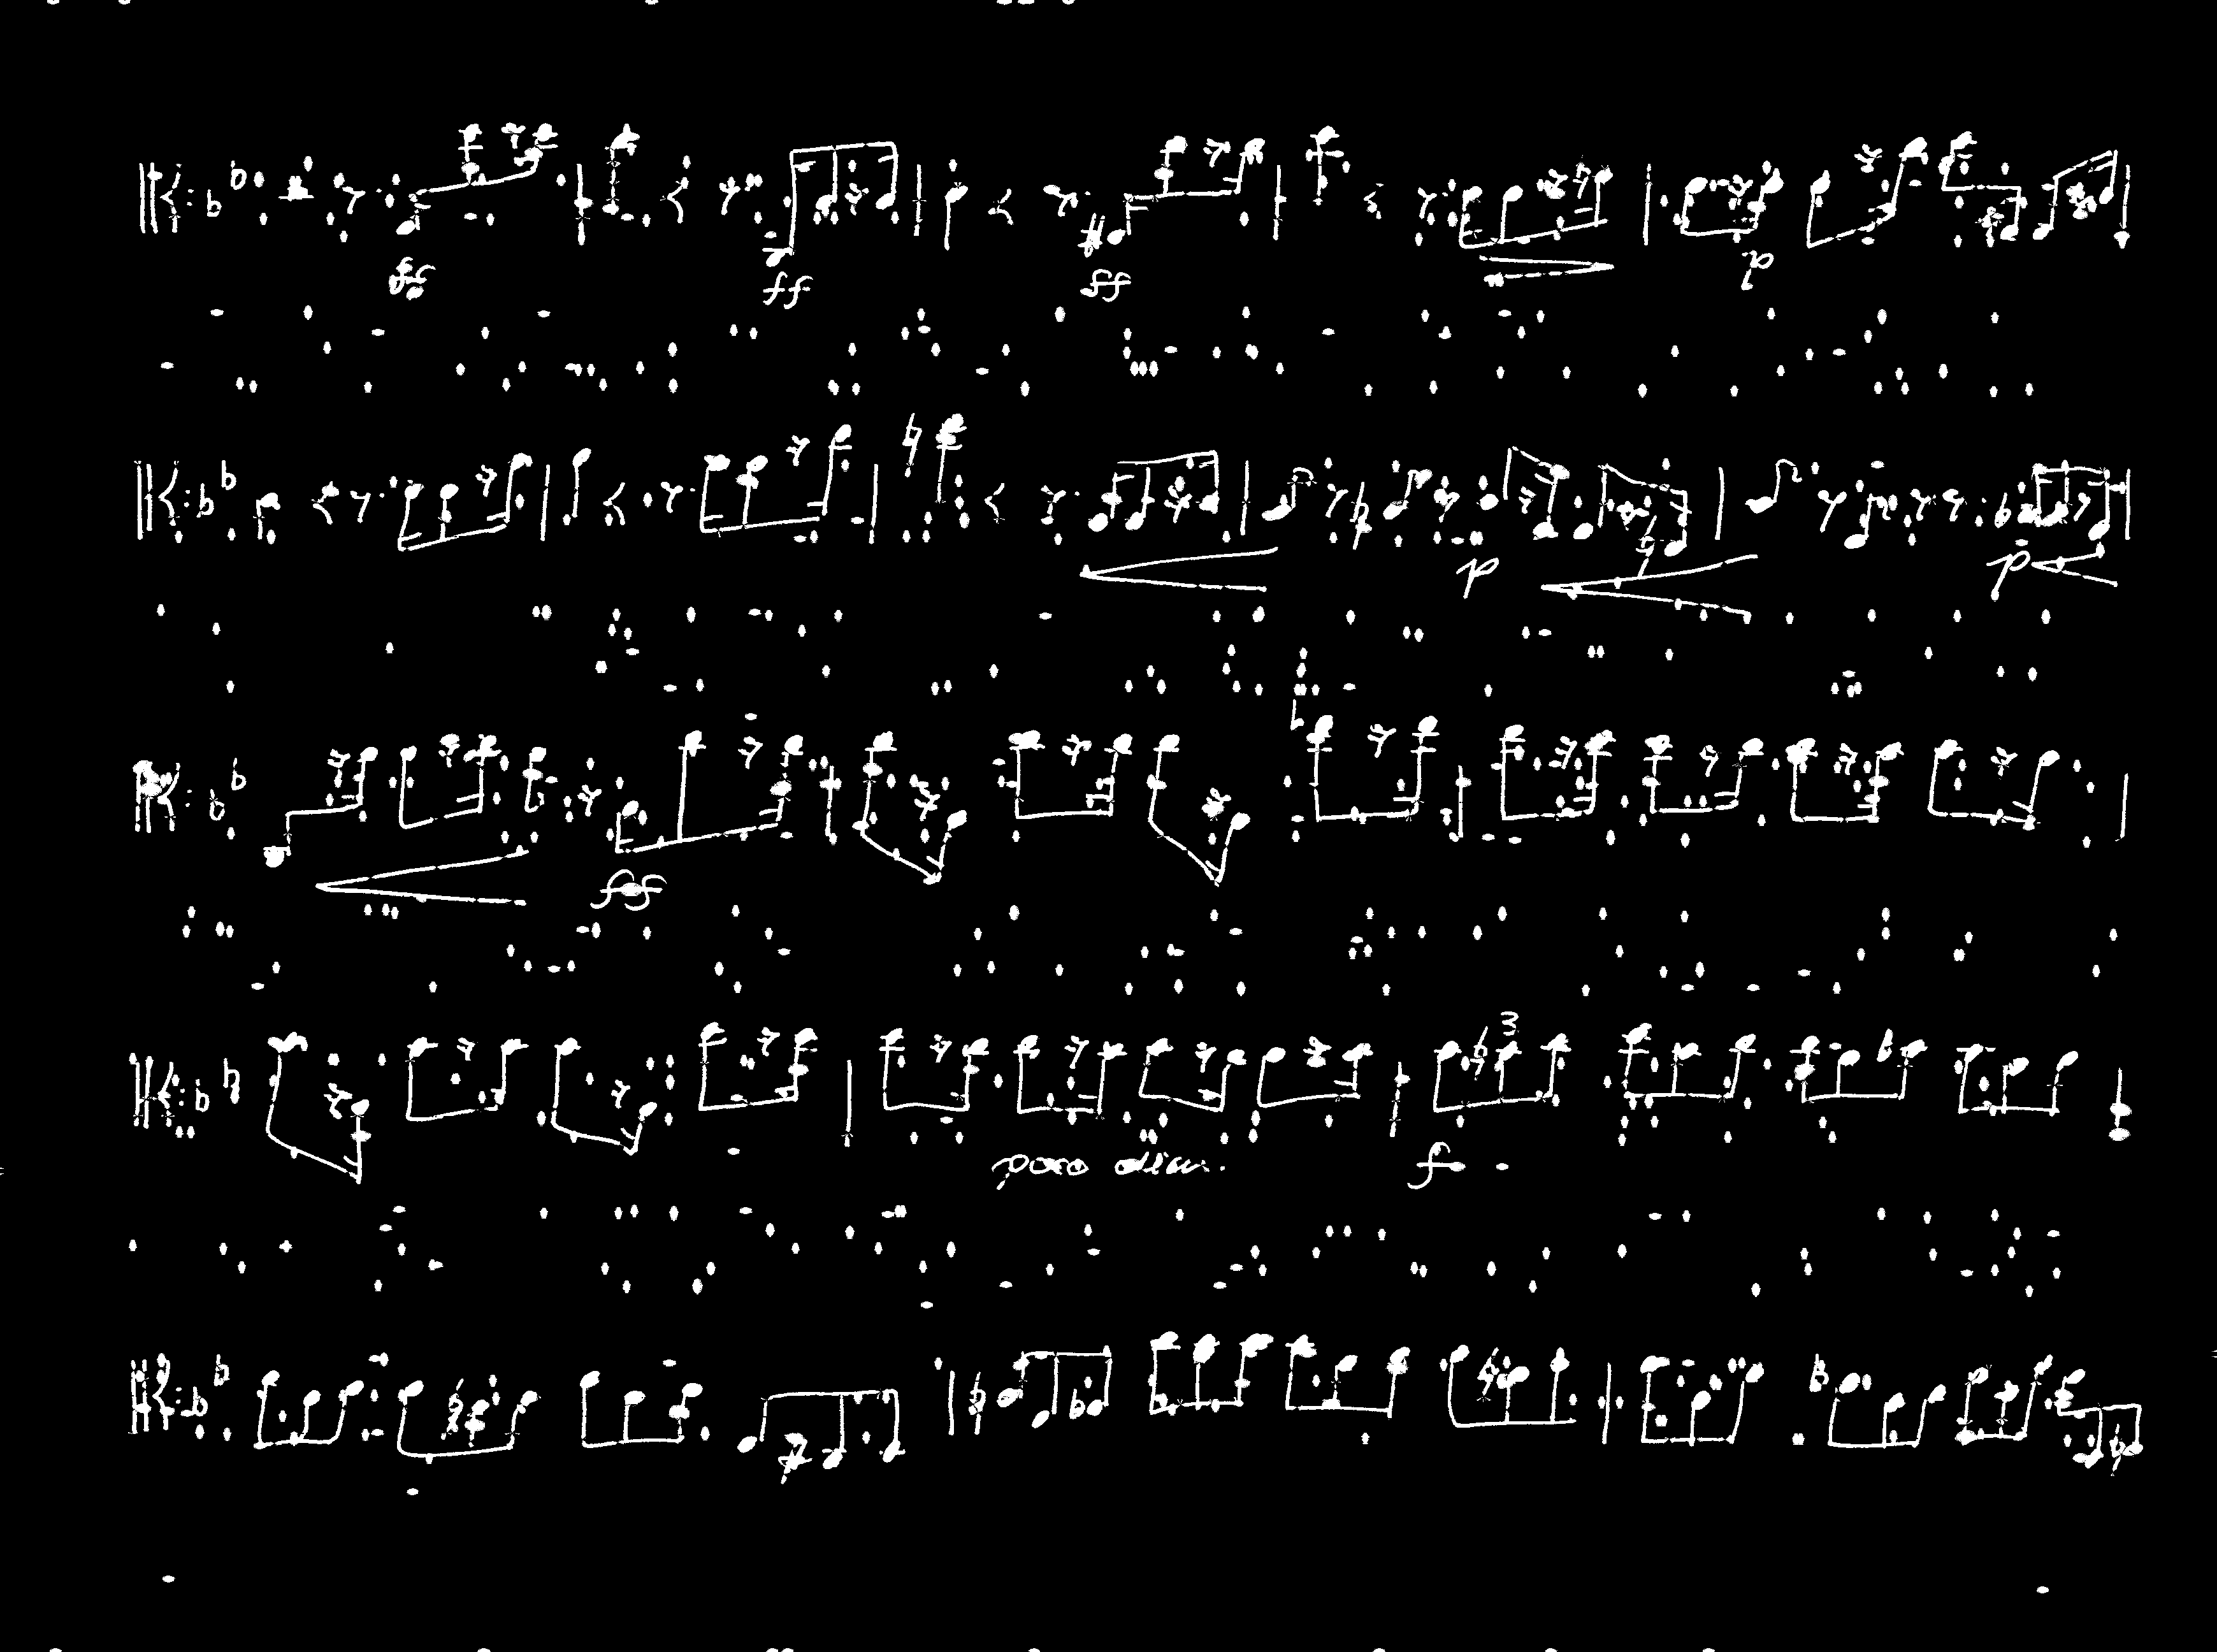 ff ff ff p
p p
fff
3
poco dim. f